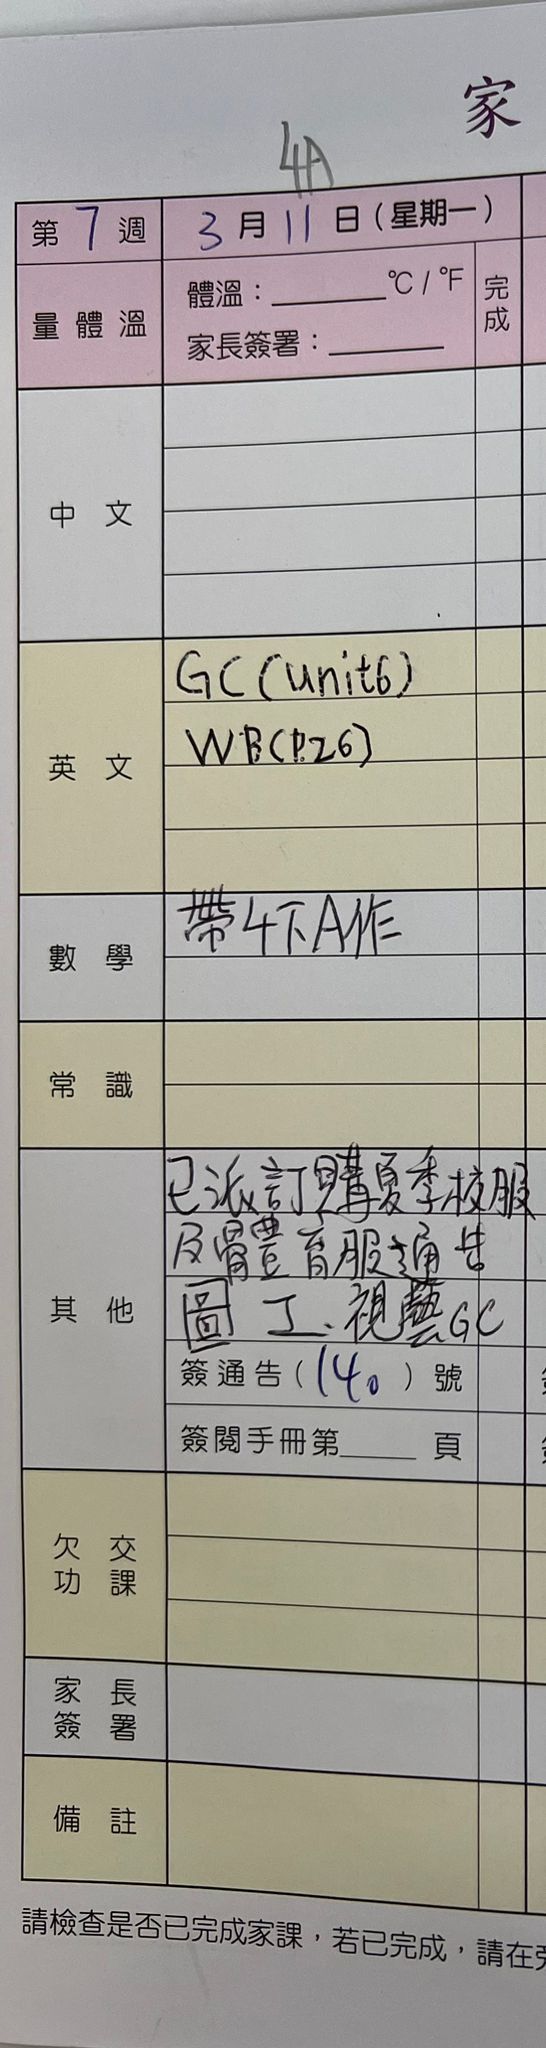 家
4A
第 7 週 3 月 11 日 (星期一)
量體溫 體溫：______°C / °F 完成
家長簽署：______
中文
GC (unit6)
英文 WB (P.26)
帶4下A作
數學
常識
已派訂購夏季校服
及體育服通告
其他 圖工、視藝GC
簽通告 (140) 號
簽閱手冊第____頁
欠交功課
家長簽署
備註
請檢查是否已完成家課，若已完成，請在